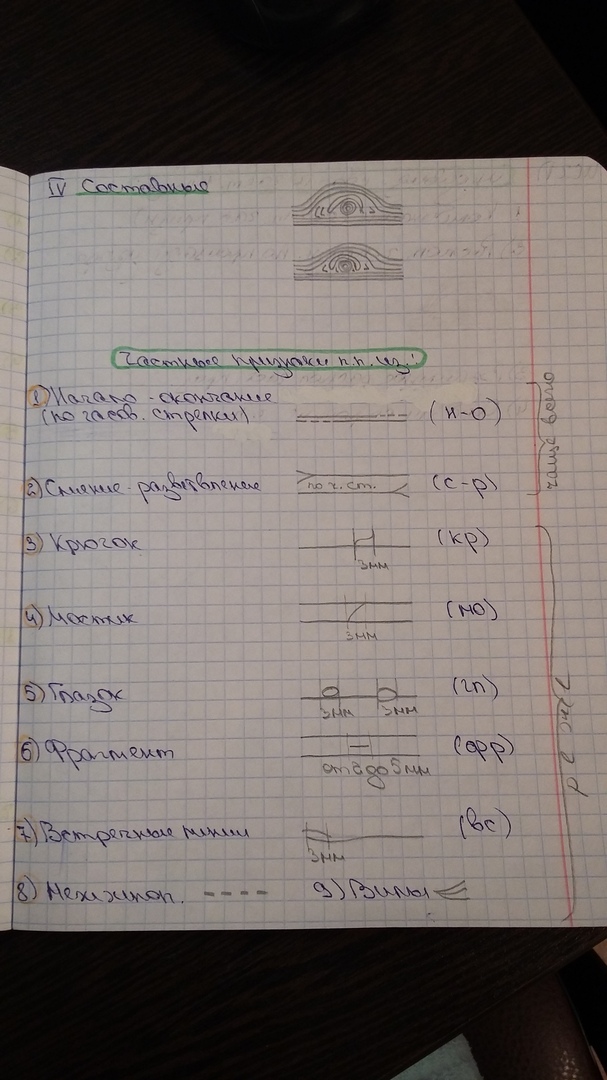 IV Составные
Частные признаки п.п. из.:
1) Начало-окончание
(по часов. стрелки)
(н-о)
чаще всего
2) Слияние-разветвление
по ч. ст.
(с-р)
3) Крючок
3мм
(кр)
4) Мостик
3мм
(мо)
5) Глазок
3мм 3мм
(гл)
6) Фрагмент
от 2 до 5 мм
(фр)
7) Встречные линии
3мм
(вс)
8) Межжпоп. 9) Вилы